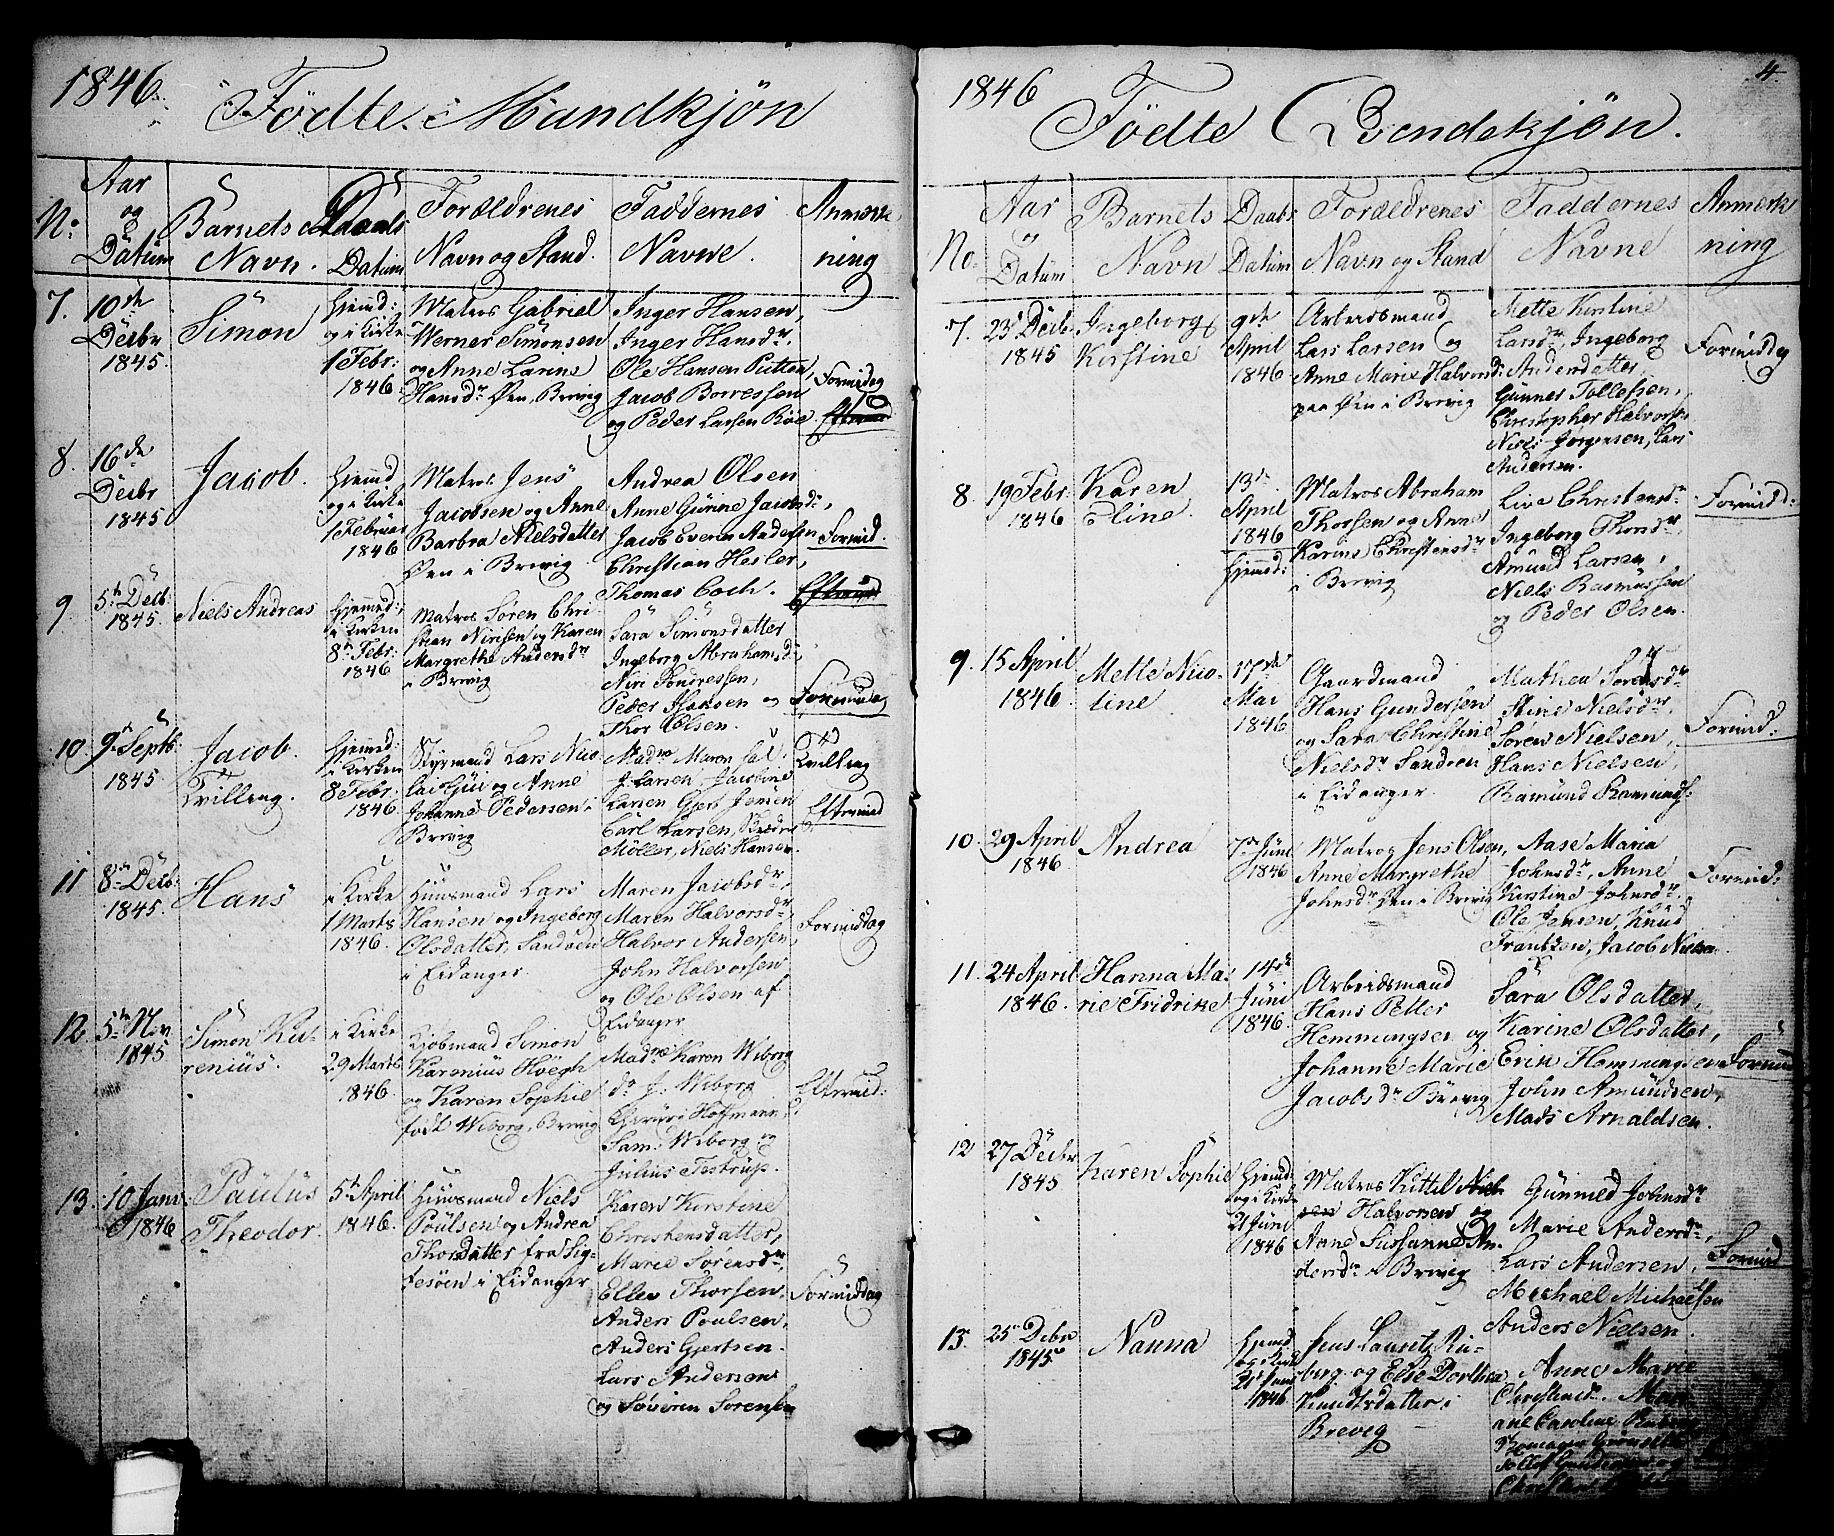 1846
Fødte Mandkjøn
No
Aar
og
Datum
Barnets
Navn.
Daabs
Datum
Forældrenes
Navn og Stand.
Faddernes
Navne.
Anmærk
ning
7.
10de
Decbr
1845.
Simon
Hjemmed:
og i Kirke
1 Febr:
1846
Matros Gabriel
Werner Simonsen
og Anne Larine
Hansdr Øen, Brevig
Inger Hansen,
Inger Hansdr,
Ole Hansen Putten,
Jacob Borressen
og Peder Larsen Roe.
Formidag
8.
16de
Decbr
1845
Jacob.
Hjemmed
og i Kirke
1 Februar
1846
Matros Jens
Jacobsen og Anne
Barbra Nielsdatter
Øen i Brevig
Andrea Olsen
Anne Gurine Jacobsdr,
Jacob Evern Andersen
Christian Hesler,
Thomas Coch.
Formid.
9
5te Decb:
1845.
Niels Andreas
Hjemmed:,
i Kirken
8de Febr:
1846
Matros Søren Chri-
stian Nirisen og Karen
Margrethe Andersdr
i Brevig
Sara Simonsdatter
Ingeborg Abrahamsd:,
Niri Pondressen,
Peder Hansen og
Thor Olsen.
Formidag
10
9de Septb.
1845
Jacob.
Tvilling.
Hjemmed:
i Kirken
8 Febr:
1846.
Styrmand Lars Nico
lai Gui og Anne
Johanne Pedersen i
Brevig
Madme Maren Sal.
J. Larsen Jacobine
Larsen Gjert Jensen
Carl Larsen,
Möller, Niels Hansen.
Tvilling
Eftermid
11
8de Decb:
1845.
Hans
i Kirke
1 Marts
1846.
Huusmand Lars
Hansen og Ingeborg
Olsdatter, Sandøen
i Eidanger.
Maren Jacobsdr,
Maren Halvorsdr
Halvor Andersen,
John Halvorsen
og Ole Olsen af
Eidanger
Formiddag
12.
5te Nov.
1845
Simon Ku-
renius.
i Kirke
29 Marts
1846.
Kjøbmand Simon
Karenius Høegh
og Karen Sophie
født Wiborg, Brevig
Madme Karen Wiborg
do J. Wiborg
Hoffmann
Sam: Wiborg og
Julius Testrup.
Eftermid:
13.
10 Janv
1846
Paulus
Theodor.
5te April
1846.
Huusmand Niels
Poulsen og Andrea
Thorsdatter fra Sig-
tesøen i Eidanger
Karen Kirstine
Christensdatter,
Marie Sørensdr,
Ellev Thorsen,
Anders Poulsen,
Anders Gjertsen.
Lars Andersen
og Søveren Sørensen
Formiddag
4
1846
Fødte Qvindekjøn.
No.
Aar
og
Datum
Barnets
Navn
Daabs
Datum
Forældrenes
Navn og Stand
Faddernes
Navne
Anmærk
ning
7.
23d Decbr
1845
Ingeborg
Kirstine
9de
April
1846
Arbeidsmand
Lars Larsen og
Anne Marie Halvorsd:
paa Øen i Brevig
Mette Kirstine
Larsdr, Ingeborg
Andersdatter,
Gunner Tollefsen,
Christopher Halvorsen
Niels Jørgensen, Lars
Andersen.
Formiddag
8.
19 Febr:
1846
Karen
Eline.
13de
April
1846
Hjemmed:
Matros Abraham
Thorsen og Anne
Karine Christensdr
i Brevig
Live Christensdr
Ingeborg Thorsdr
Amund Larsen,
Niels Rasmussen
og Peder Olsen.
Formidd:
9.
15 April
1846.
Mette Nico-
line.
17de
Mai
1846
Gaardmand
Hans Gundersen
og Sara Christine
Nielsdr Sandøen
i Eidanger.
Mathea Sørensdr
Stine Nielsdr,
Søren Nielsen,
Hans Nielsen,
Ramund Ramunds:
Formidd:
10.
29 April
1846.
Andrea
7de Juni
1846
Matros Jens Olsen,
Anne Margrethe
Johnsdr Øen i Brevig
Aase Maria
Johnsdr, Anne
Kirstine Johnsdr.
Ole Jensen, Knud
Frantzen, Jacob Nielsen
Formid:
11.
24 April
1846.
Hanna Ma-
rie Fridrike
14de
Juni
1846.
Arbeidsmand
Hans Petter
Hemmingsen og
Johanne Marie
Jacobsdr Brevig
Sara Olsdatter,
Karine Olsdatter,
Erik Hemmingsen
John Amundsen,
Mads Arnaldsen.
Formid
12
27 Decbr
1845
Karen Sophie
Hjemmed:
og i Kirke
21 Juni
1846
Matros Kittil
Halvorsen og
Anne Sussanne An-
dersdr i Brevig
Gunnild Johnsdr
Marie Andersdr,
Lars Andersen,
Michael Michaelsen
Anders Nielsen.
Formid
13.
25de Decbr
1845
Nanna
Hjemmed
og i Kirke
21 Juni
1846
Jens Lauritz Ri-
berg og Else Dorthea
Knudsdatter i
Brevig
Anne Marie
Christensdr.
ane Caroline